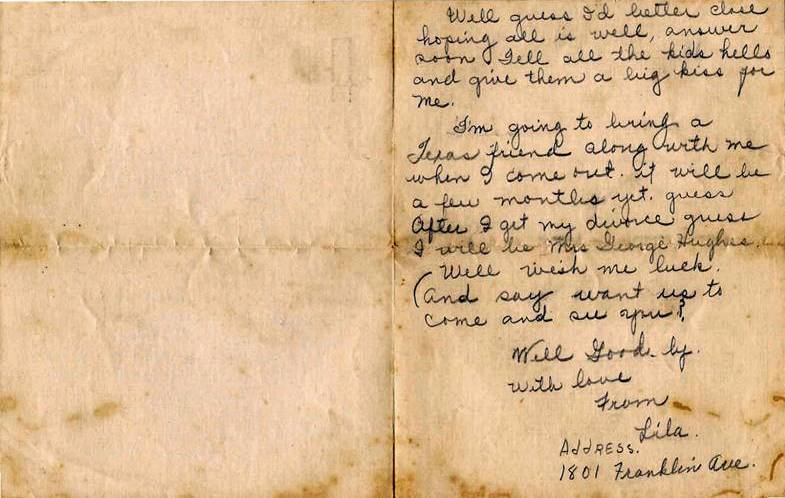 Well guess I'd better close
hoping all is well, answer
soon Tell all the kids hello
and give them a big kiss for
me.
I'm going to bring a
Texas friend along with me
when I come out. it will be
a few months yet. guess
After I get my divorce guess
I will be Mrs George Hughes.
Well wish me luck.
(And say want us to
come and see you?,
Well Good-by.
With love
From
Lila.
Address.
1801 Franklin Ave.